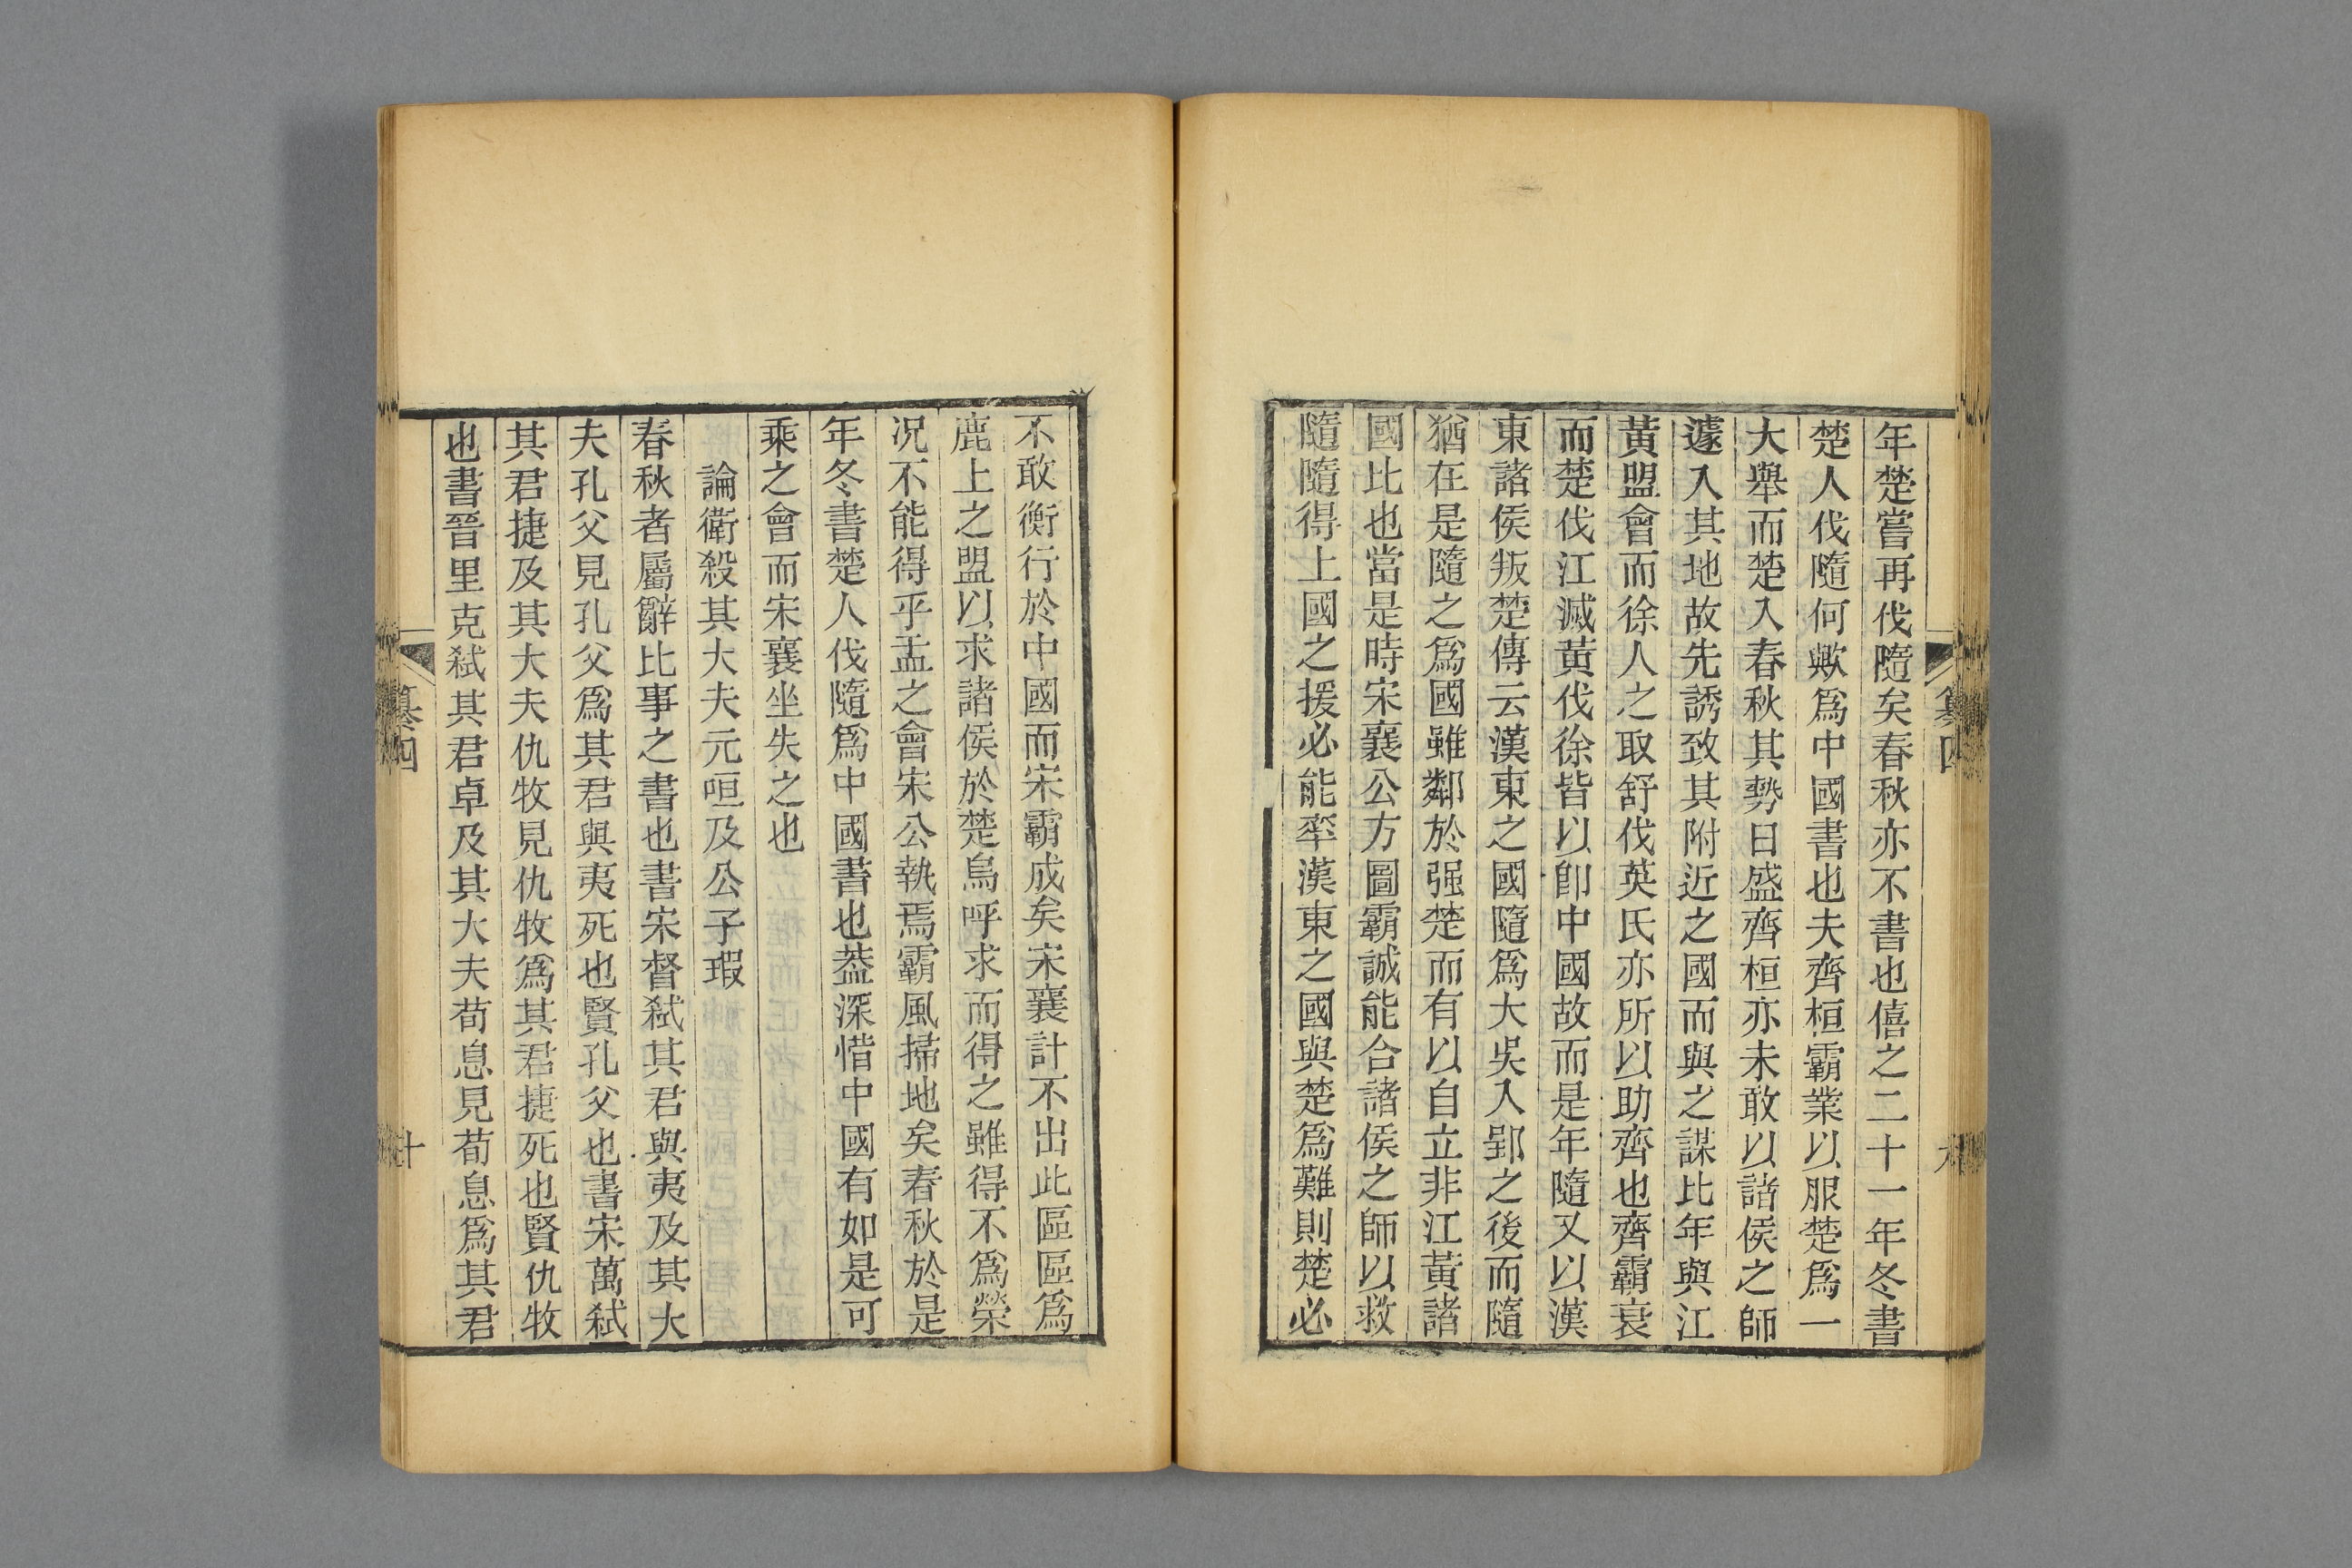 年楚嘗再伐隨矣春秋亦不書也僖之二十一年冬書
楚人伐隨何歟爲中國書也夫齊桓霸業以服楚爲一
大舉而楚入春秋其勢日盛齊桓亦未敢以諸侯之師
遽入其地故先誘致其附近之國而與之謀比年與江
黃盟會而徐人之取舒伐英氏亦所以助齊也齊霸衰
而楚伐江滅黃伐徐皆以卽中國故而是年隨又以漢
東諸侯叛楚傳云漢東之國隨爲大吳入郢之後而隨
猶在是隨之爲國雖鄰於强楚而有以自立非江黃諸
國比也當是時宋襄公方圖霸誠能合諸侯之師以救
隨隨得上國之援必能率漢東之國與楚爲難則楚必
不敢衡行於中國而宋霸成矣宋襄計不出此區區爲
鹿上之盟以求諸侯於楚烏呼求而得之雖得不爲榮
况不能得乎盂之會宋公執焉霸風掃地矣春秋於是
年冬書楚人伐隨爲中國書也葢深惜中國有如是可
乘之會而宋襄坐失之也
論衛殺其大夫元咺及公子瑕
春秋者屬辭比事之書也書宋督弑其君與夷及其大
夫孔父見孔父爲其君與夷死也賢孔父也書宋萬弑
其君捷及其大夫仇牧見仇牧爲其君捷死也賢仇牧
也書晉里克弑其君卓及其大夫荀息見荀息爲其君
纂四
十